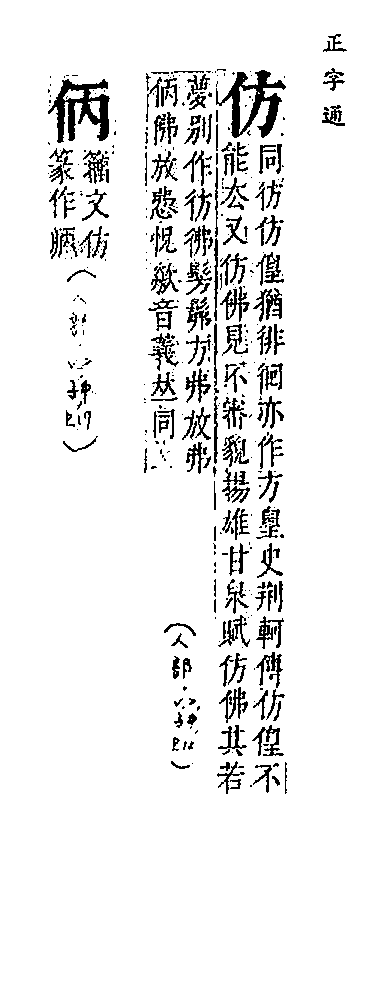 正字通
仿
同彷仿偟猶徘徊亦作方皇史荆軻傳仿偟不
能厺又仿佛見不審貌揚雄甘泉賦仿佛其若
夢别作彷彿髣髴方弗放弗
俩佛放悲怳歘音義𠀤同
俩
籀文仿
篆作
(人部
P.17)
(人部
P.16)